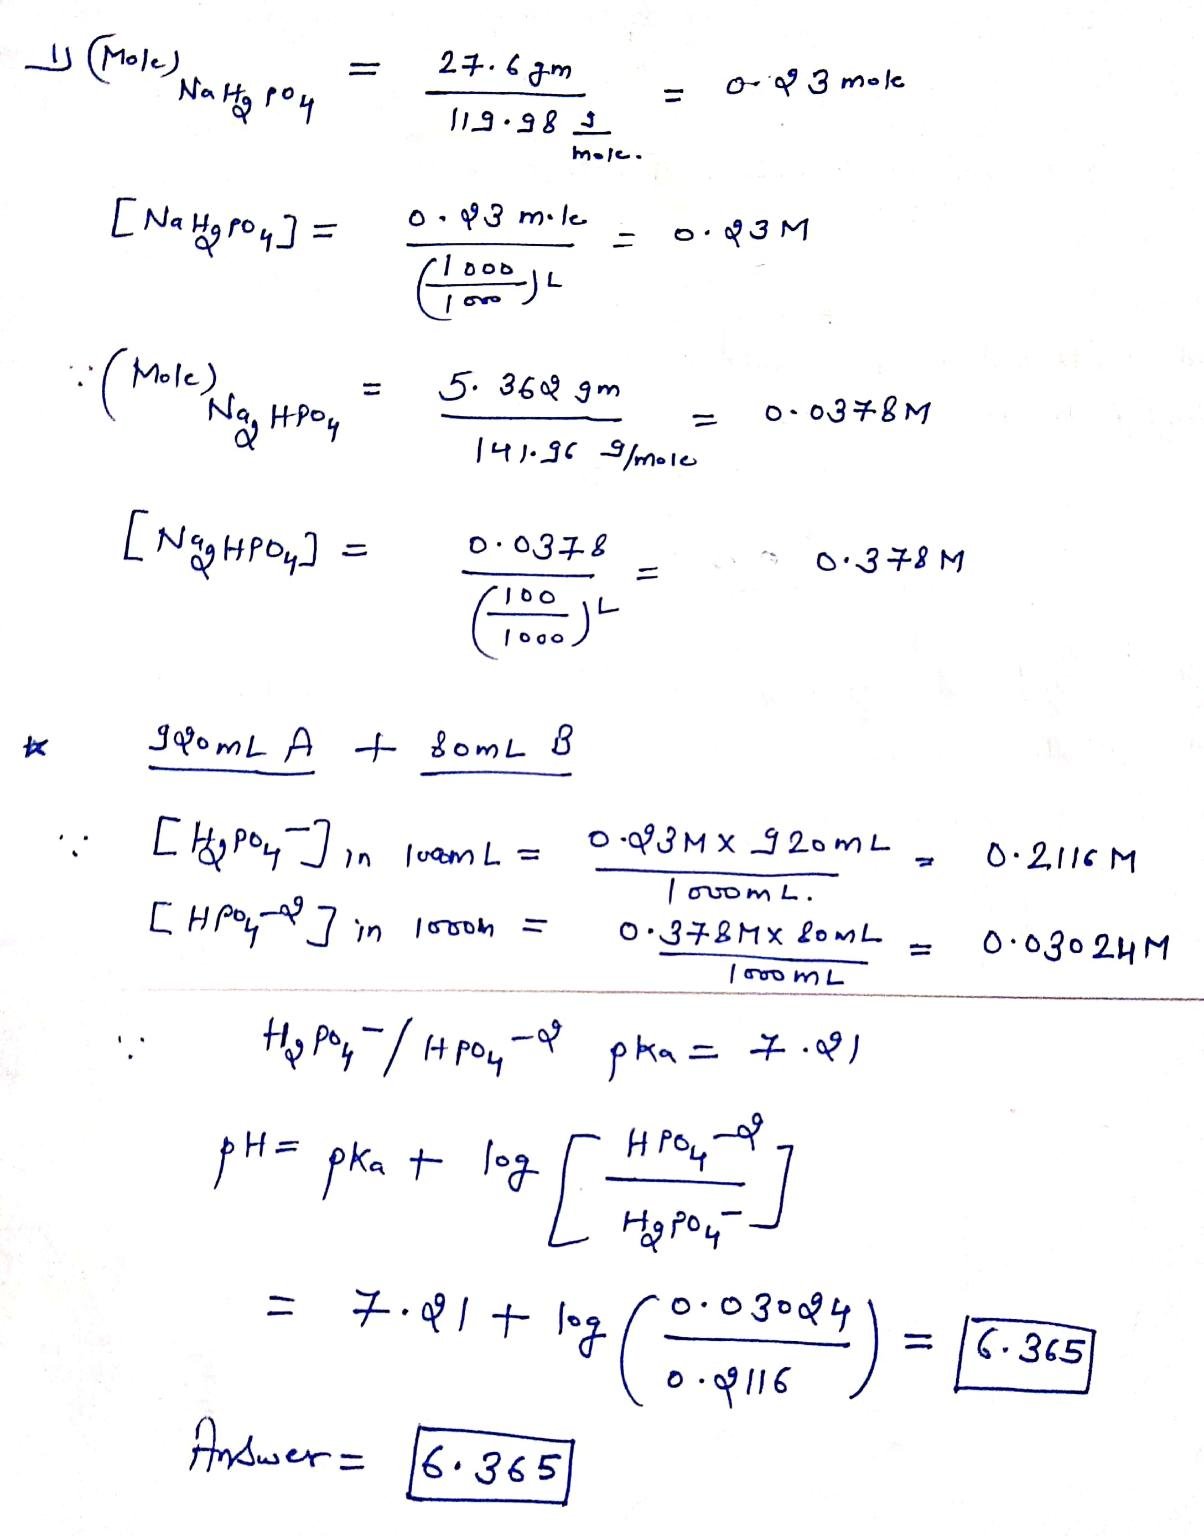 1) (Mole) NaH2PO4 = 27.6 gm / 119.98 g/mole. = 0.23 mole
[NaH2PO4] = 0.23 mole / (1000/1000) L = 0.23 M
∵ (Mole) Na2HPO4 = 5.362 gm / 141.96 g/mole = 0.0378 M
[Na2HPO4] = 0.0378 / (100/1000) L = 0.378 M
* 920 mL A + 80 mL B
∵ [H2PO4-] in 1000 mL = 0.23 M x 920 mL / 1000 mL. = 0.2116 M
[HPO4-2] in 1000 = 0.378 M x 80 mL / 1000 mL = 0.03024 M
∵ H2PO4- / HPO4-2 pKa = 7.21
pH = pKa + log [HPO4-2 / H2PO4-]
= 7.21 + log (0.03024 / 0.2116) = 6.365
Answer = 6.365